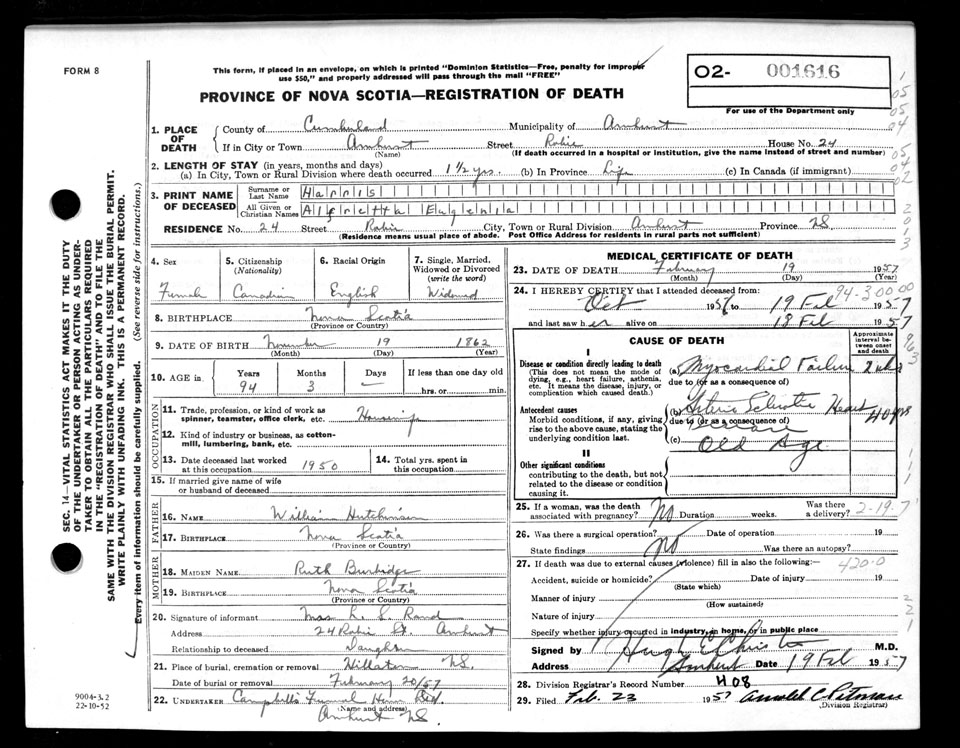 FORM 8
This form, if placed in an envelope, on which is printed "Dominion Statistics—Free, penalty for improper
use $50," and properly addressed will pass through the mail "FREE"
O2- 001616
For use of the Department only
PROVINCE OF NOVA SCOTIA—REGISTRATION OF DEATH
1. PLACE OF DEATH
County of Cumberland Municipality of Amherst
If in City or Town Amherst Street Robie House No. 24
(Name) (If death occurred in a hospital or institution, give the name instead of street and number)
2. LENGTH OF STAY (in years, months and days)
(a) In City, Town or Rural Division where death occurred 1 1/2 yrs. (b) In Province Life (c) In Canada (if immigrant)
3. PRINT NAME OF DECEASED
Surname or Last Name Harris
All Given or Christian Names Alfretta Eugenia
RESIDENCE No. 24 Street Robie City, Town or Rural Division Amherst Province NS.
(Residence means usual place of abode. Post Office Address for residents in rural parts not sufficient)
4. Sex
Female
5. Citizenship
(Nationality)
Canadian
6. Racial Origin
English
7. Single, Married, Widowed or Divorced
(write the word)
Widowed
8. BIRTHPLACE Nova Scotia
(Province or Country)
9. DATE OF BIRTH November 19 1862
(Month) (Day) (Year)
10. AGE in Years Months Days If less than one day old
94 3 — hrs. or min.
OCCUPATION
11. Trade, profession, or kind of work as
spinner, teamster, office clerk, etc. Housewife
12. Kind of industry or business, as cotton-
mill, lumbering, bank, etc.
13. Date deceased last worked
at this occupation 1950
14. Total yrs. spent in
this occupation
15. If married give name of wife
or husband of deceased
FATHER
16. NAME William Hutchinson
17. BIRTHPLACE Nova Scotia
(Province or Country)
MOTHER
18. MAIDEN NAME Ruth Burbidge
19. BIRTHPLACE Nova Scotia
(Province or Country)
20. Signature of informant Mrs L. S. Rand
Address 24 Robie St. Amherst
Relationship to deceased Daughter
21. Place of burial, cremation or removal NS.
Date of burial or removal February 20/57
22. UNDERTAKER Campbell's Funeral Home
(Name and address)
Amherst NS.
MEDICAL CERTIFICATE OF DEATH
23. DATE OF DEATH February 19 1957
(Month) (Day) (Year)
24. I HEREBY CERTIFY that I attended deceased from: 94-30000
Oct 1956 to 19 Feb 1957
and last saw her alive on 18 Feb 1957
CAUSE OF DEATH
Approximate interval between onset and death
I
Disease or condition directly leading to death
(This does not mean the mode of
dying, e.g., heart failure, asthenia,
etc. It means the disease, injury, or
complication which caused death.)
(a) Myocardial Failure 2 wks
due to (or as a consequence of)
Antecedent causes
Morbid conditions, if any, giving
rise to the above cause, stating the
underlying condition last.
(b) Arterio Sclerotic Heart Disease
due to (or as a consequence of)
(c) Old Age
II
Other significant conditions
contributing to the death, but not
related to the disease or condition
causing it.
25. If a woman, was the death
associated with pregnancy? No Duration weeks. Was there
a delivery? 2-19-7
26. Was there a surgical operation? Date of operation 19
State findings No Was there an autopsy?
27. If death was due to external causes (violence) fill in also the following:— 420-0
Accident, suicide or homicide? Date of injury 19
(State which)
Manner of injury
(How sustained)
Nature of injury
Specify whether injury occurred in industry, in home, or in public place
Signed by Hugh E Christie M.D.
Address Amherst Date 19 Feb 1957
28. Division Registrar's Record Number 408
29. Filed Feb. 23 1957
(Division Registrar)
SEC. 14—VITAL STATISTICS ACT MAKES IT THE DUTY
OF THE UNDERTAKER OR PERSON ACTING AS UNDER-
TAKER TO OBTAIN ALL THE PARTICULARS REQUIRED
IN THE "REGISTRATION OF DEATH" AND TO FILE THE
SAME WITH THE DIVISION REGISTRAR WHO SHALL ISSUE THE BURIAL PERMIT.
WRITE PLAINLY WITH UNFADING INK. THIS IS A PERMANENT RECORD.
Every item of information should be carefully supplied. (See reverse side for instructions.)
9004-3.2
22-10-52